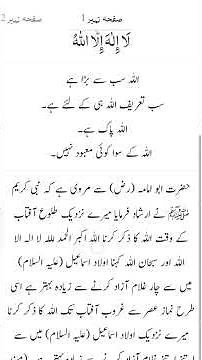 صفحہ نمبر 1
صفحہ نمبر 2
لَا إِلٰهَ إِلَّا اللهُ
اللہ سب سے بڑا ہے
سب تعریف اللہ ہی کے لئے ہے۔
اللہ پاک ہے۔
اللہ کے سوا کوئی معبود نہیں۔
حضرت ابو امامہ (رض) سے مروی ہے کہ نبی کریم
ﷺ نے ارشاد فرمایا میرے نزدیک طلوع آفتاب
کے وقت اللہ کا ذکر کرنا اللہ اکبر الحمد للہ لا الہ الا
اللہ اور سبحان اللہ کہنا اولاد اسماعیل (علیہ السلام)
میں سے چار غلام آزاد کرنے سے زیادہ بہتر ہے اسی
طرح نماز عصر سے غروب آفتاب تک اللہ کا ذکر کرنا
میرے نزدیک اولاد اسماعیل (علیہ السلام) میں سے